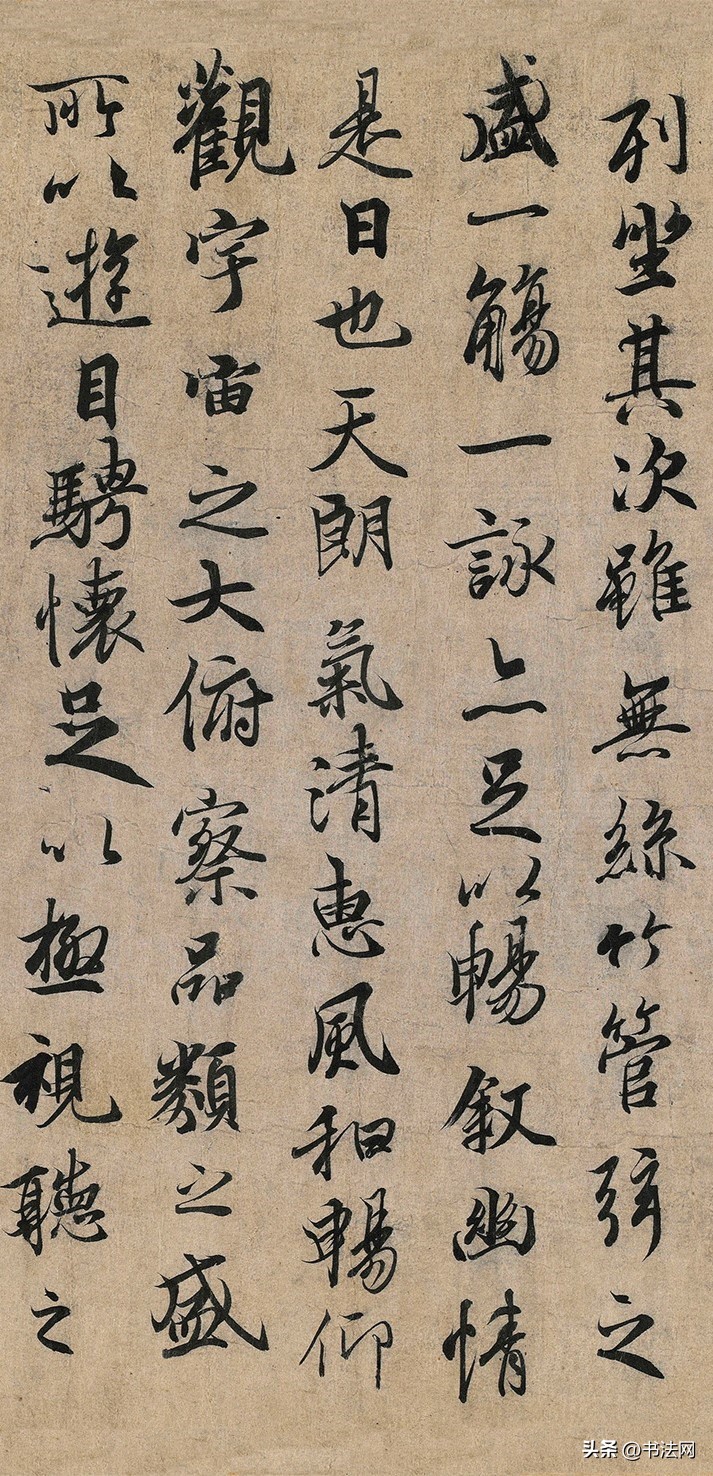 列坐其次雖無絲竹管弦之
盛一觴一詠亦足以暢敘幽情
是日也天朗氣清惠風和暢仰
觀宇宙之大俯察品類之盛
所以遊目騁懷足以極視聽之
头条 @书法网